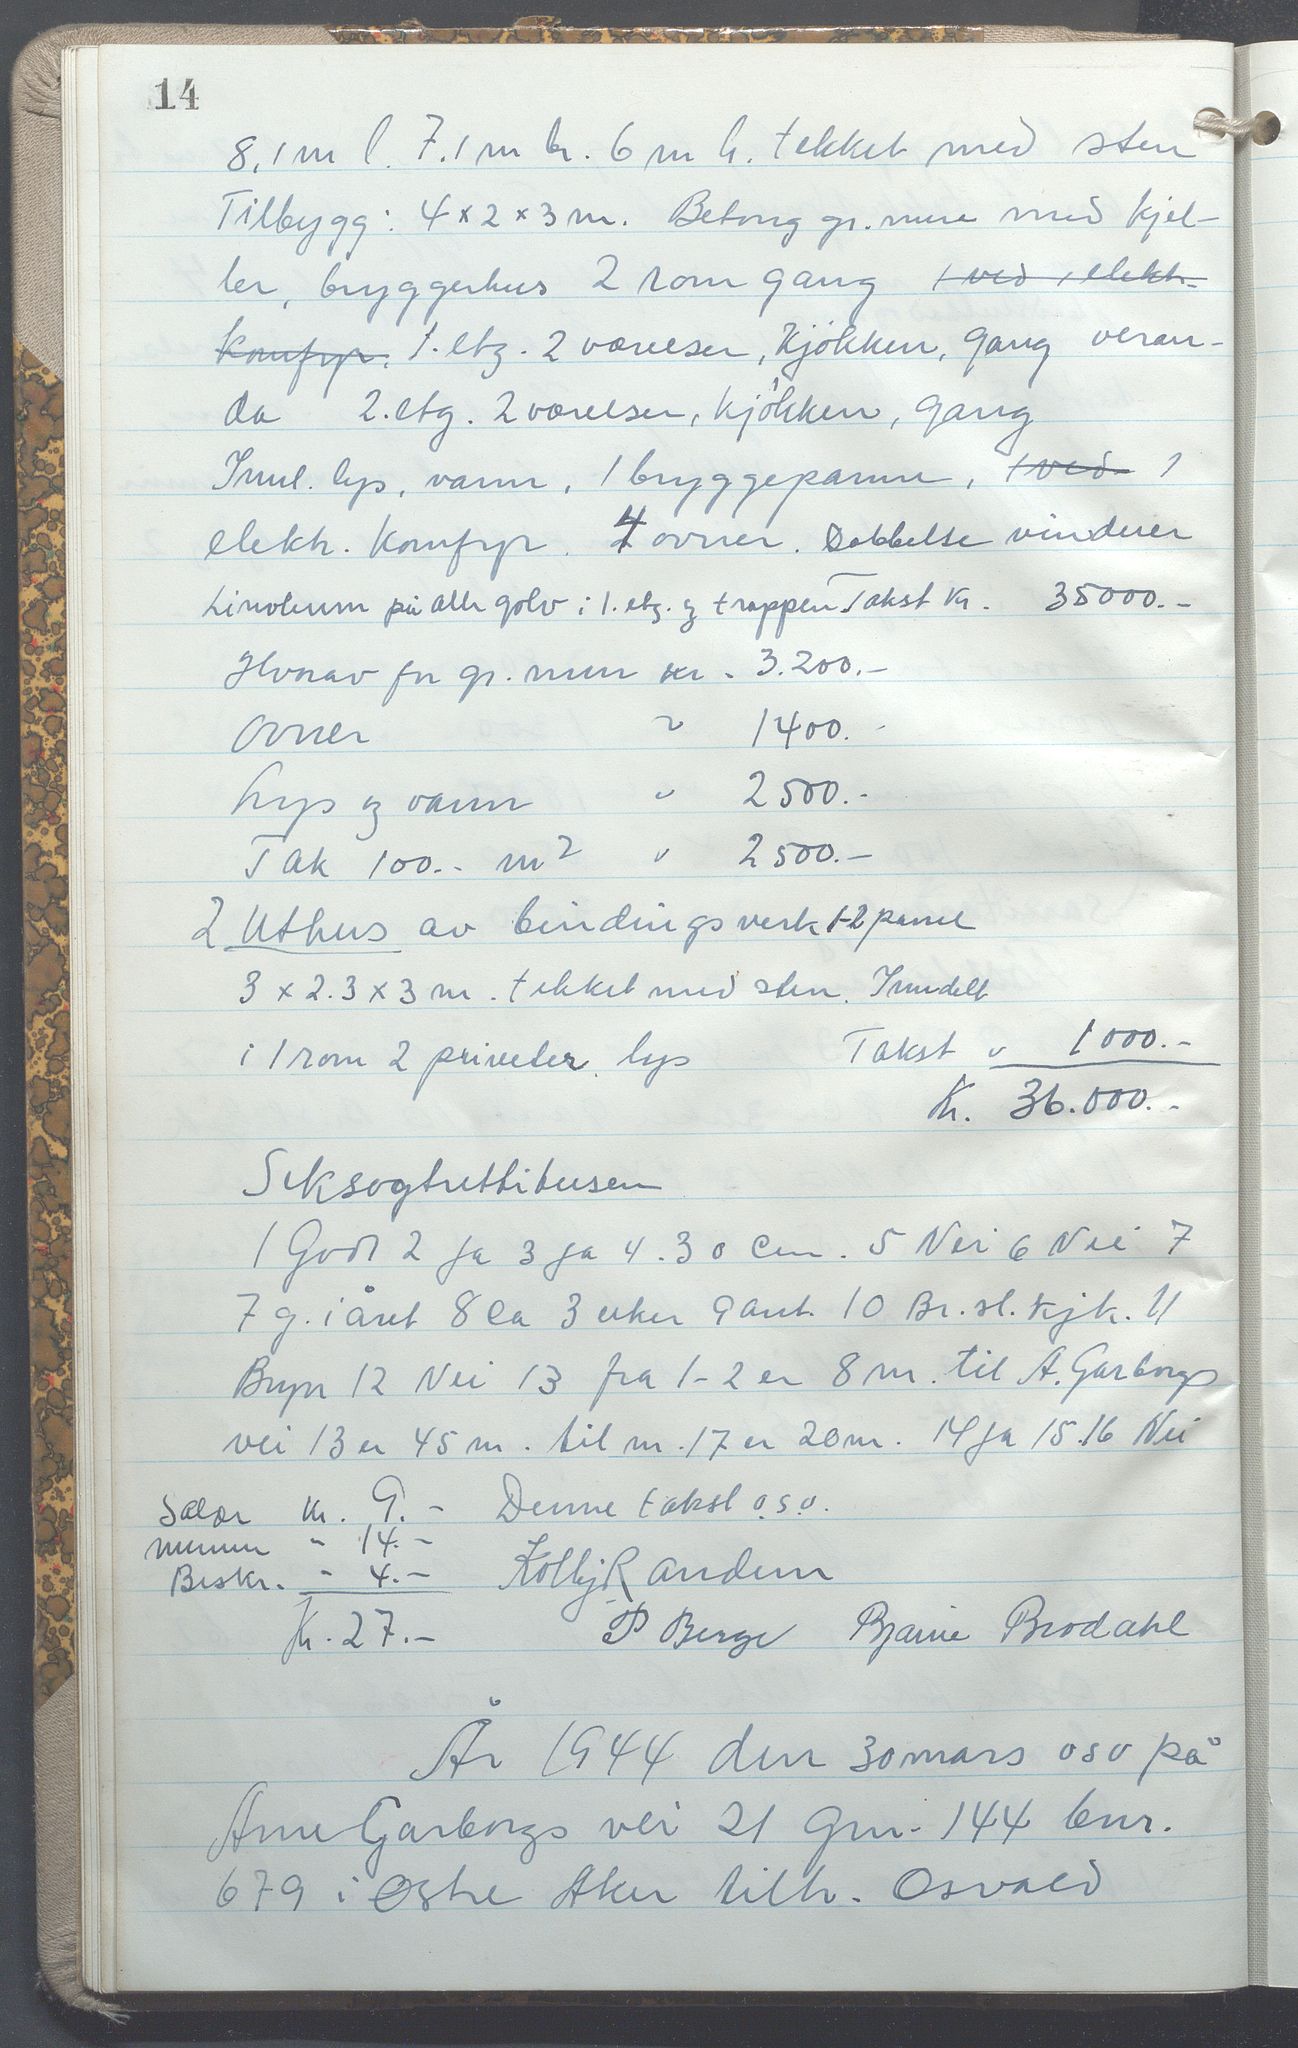 14
8,1 m l. 7,1 m br. 6 m h. tekket med sten
Tilbygg: 4 x 2 x 3 m. Betong gr. mur med kjel-
ler, bryggerhus 2 rom gang 1 ved 1 elektr.
komfyr. 1. etg. 2 værelser, kjökken, gang veran-
da 2. etg. 2 værelser, kjökken, gang
Innl. lys, vann, 1 bryggepanne, 1 ved 1
elektr. komfyr. 4 ovner. Dobbelte vinduer
Linoleum på alle golv i 1. etg. og trappen. Takst kr. 35000.-
Hvorav for gr. mur kr. 3.200.-
Ovner " 1400.-
Lys og vann " 2500.-
Tak 100.- m² " 2500.-
2 Uthus av bindingsverk 1-2 panel
3 x 2.3 x 3 m. tekket med sten. Inndelt
i 1 rom 2 priveter. lys Takst " 1000.-
Kr. 36.000.-
Seksogtrettitusen
1 God 2 Ja 3 Ja 4. 30 cm. 5 Nei 6 Nei 7
7 g. i året 8 Ca 3 uker 9 ant. 10 Br. sl. kjk. 11
Bryn 12 Nei 13 fra 1-2 er 8 m. til A. Garborgs
vei 13 er 45 m. til nr. 17 er 20 m. 14 Ja 15.16 Nei
Salær kr. 9.- Denne takst o.s.v.
" 14.-
Beskr. " 4.- Kolbj Randem
Kr. 27.- P Berge Bjarne Brodahl
År 1944 den 30 mars osv på
Arne Garborgs vei 21 Gnr. 144 bnr.
679 i Östre Aker tilh. Osvald